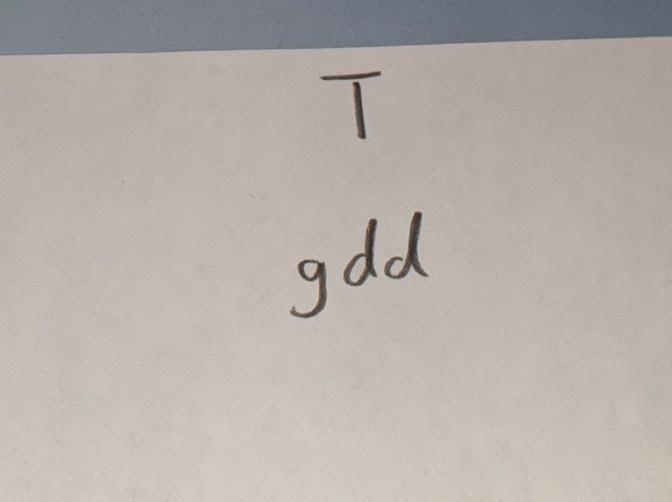 T
gdd